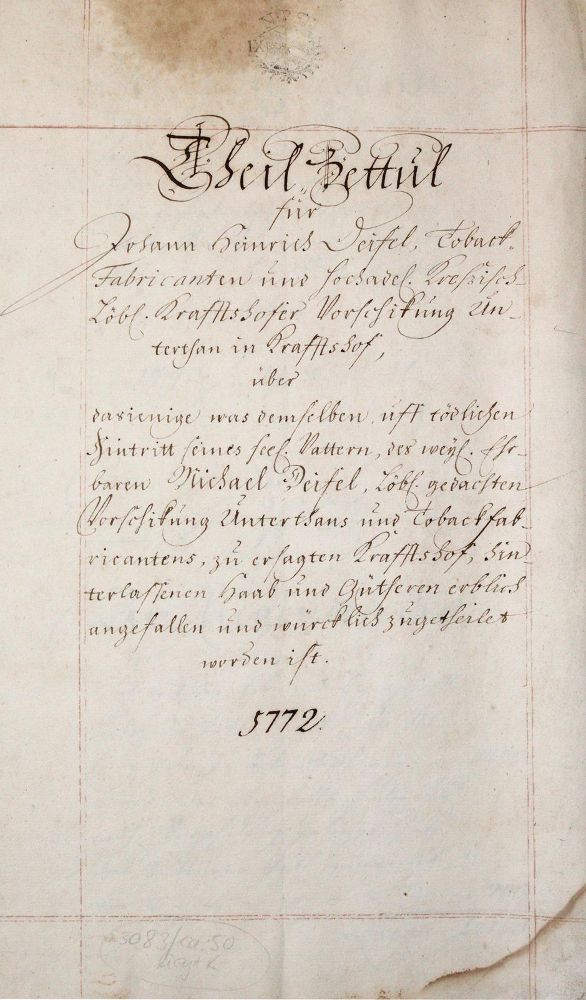 Theil Zettul
für
Johann Heinrich Deißel, Toback-
Fabricanten und hochadel. Kreßisch-
Löbl. Krafftshofer Vorschikung Un-
terthan in Krafftshof,
über
dasienige was demselben, uff tödlichen
Hintritt seines seel. Vattern, des weyl. Ehr-
baren Michael Deißel, Löbl. gedachten
Vorschikung Unterthans und Tobackfab-
ricantens, zu ersagten Krafftshof, hin-
terlassenen Haab und Güthern erblich
angefallen und würcklich zugetheilet
worden ist.
1772.
3083/